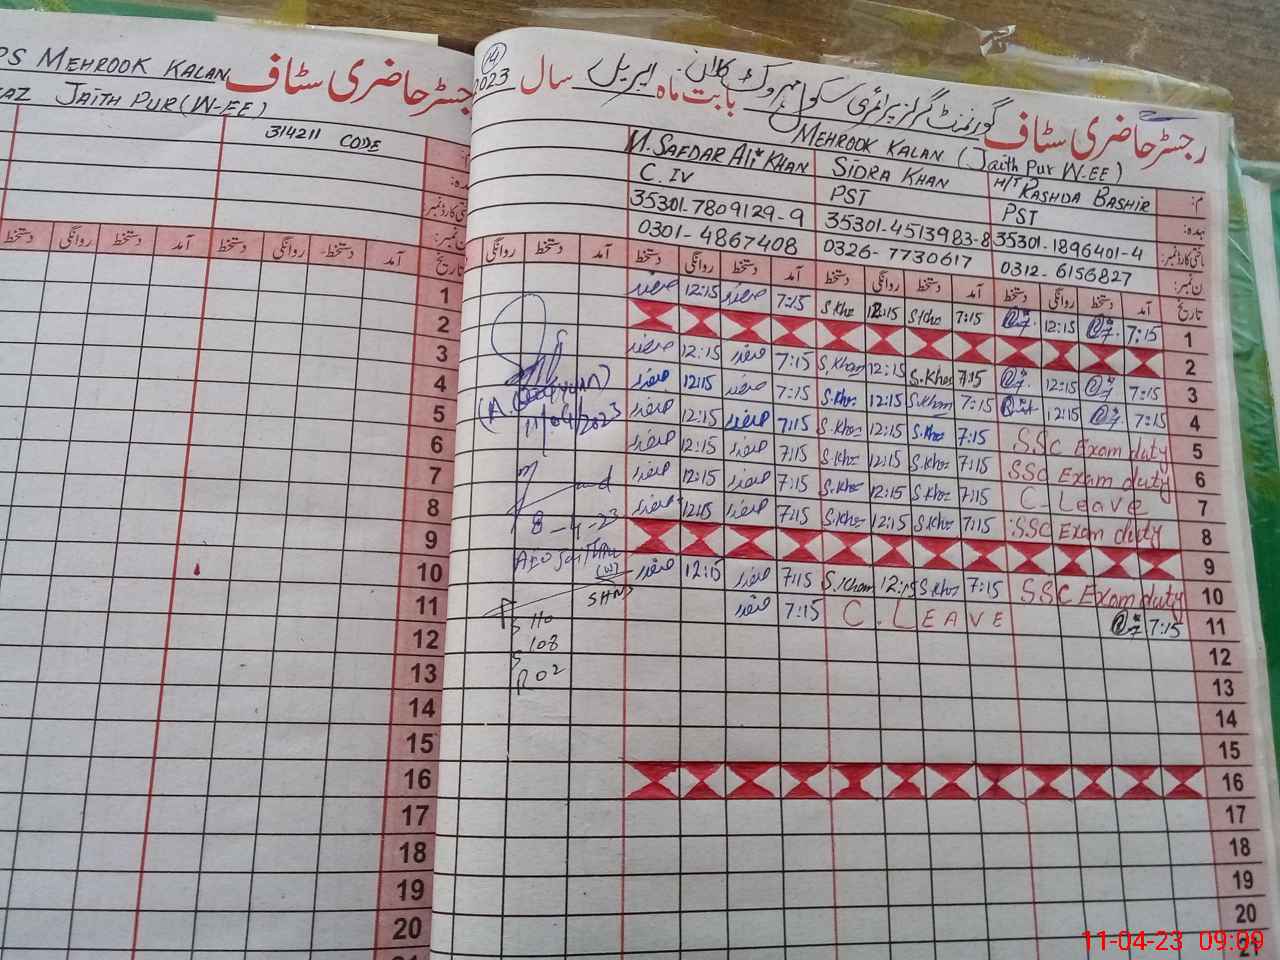 PS MEHROOK KALAN
رجسٹر حاضری سٹاف
JAITH PUR (W-EE)
314211 CODE
آمد دستخط روانگی دستخط آمد دستخط روانگی دستخط
تاریخ
1
2
3
4
5
6
7
8
9
10
11
12
13
14
15
16
17
18
19
20
21
14
رجسٹر حاضری سٹاف گورنمنٹ گرلز پرائمری سکول مہروک کلاں بابت ماہ اپریل سال 2023
MEHROOK KALAN (Jaith Pur W-EE)
M. SAFDAR Ali KHAN SIDRA KHAN H/T RASHDA BASHIR
C. IV PST PST
35301-7809129-9 35301-4513983-8 35301-1896401-4
0301-4867408 0326-7730617 0312-6156827
تاریخ آمد دستخط روانگی دستخط آمد دستخط روانگی دستخط آمد دستخط روانگی دستخط آمد دستخط روانگی
صفدر 12:15 صفدر 7:15 S.Kha 12:15 S.Kha 7:15 12:15 7:15 1
2
صفدر 12:15 صفدر 7:15 S.Khan 12:15 S.Kha 7:15 12:15 7:15 3
صفدر 12:15 صفدر 7:15 S.Kha 12:15 S.Khan 7:15 12:15 7:15 4
صفدر 12:15 صفدر 7:15 S.Kha 12:15 S.Kha 7:15 SSC Exam duty 5
صفدر 12:15 صفدر 7:15 S.Kha 12:15 S.Kha 7:15 SSC Exam duty 6
صفدر 12:15 صفدر 7:15 S.Kha 12:15 S.Kha 7:15 C. Leave 7
صفدر 12:15 صفدر 7:15 S.Kha 12:15 S.Kha 7:15 SSC Exam duty 8
9
صفدر 12:15 صفدر 7:15 S.Khan 12:15 S.Kha 7:15 SSC Exam duty 10
صفدر 7:15 C. LEAVE 7:15 11
12
13
14
15
16
17
18
19
20
21
11/04/2023
8-4-23
AEO
(W)
110
108
R 02
11-04-23 09:09